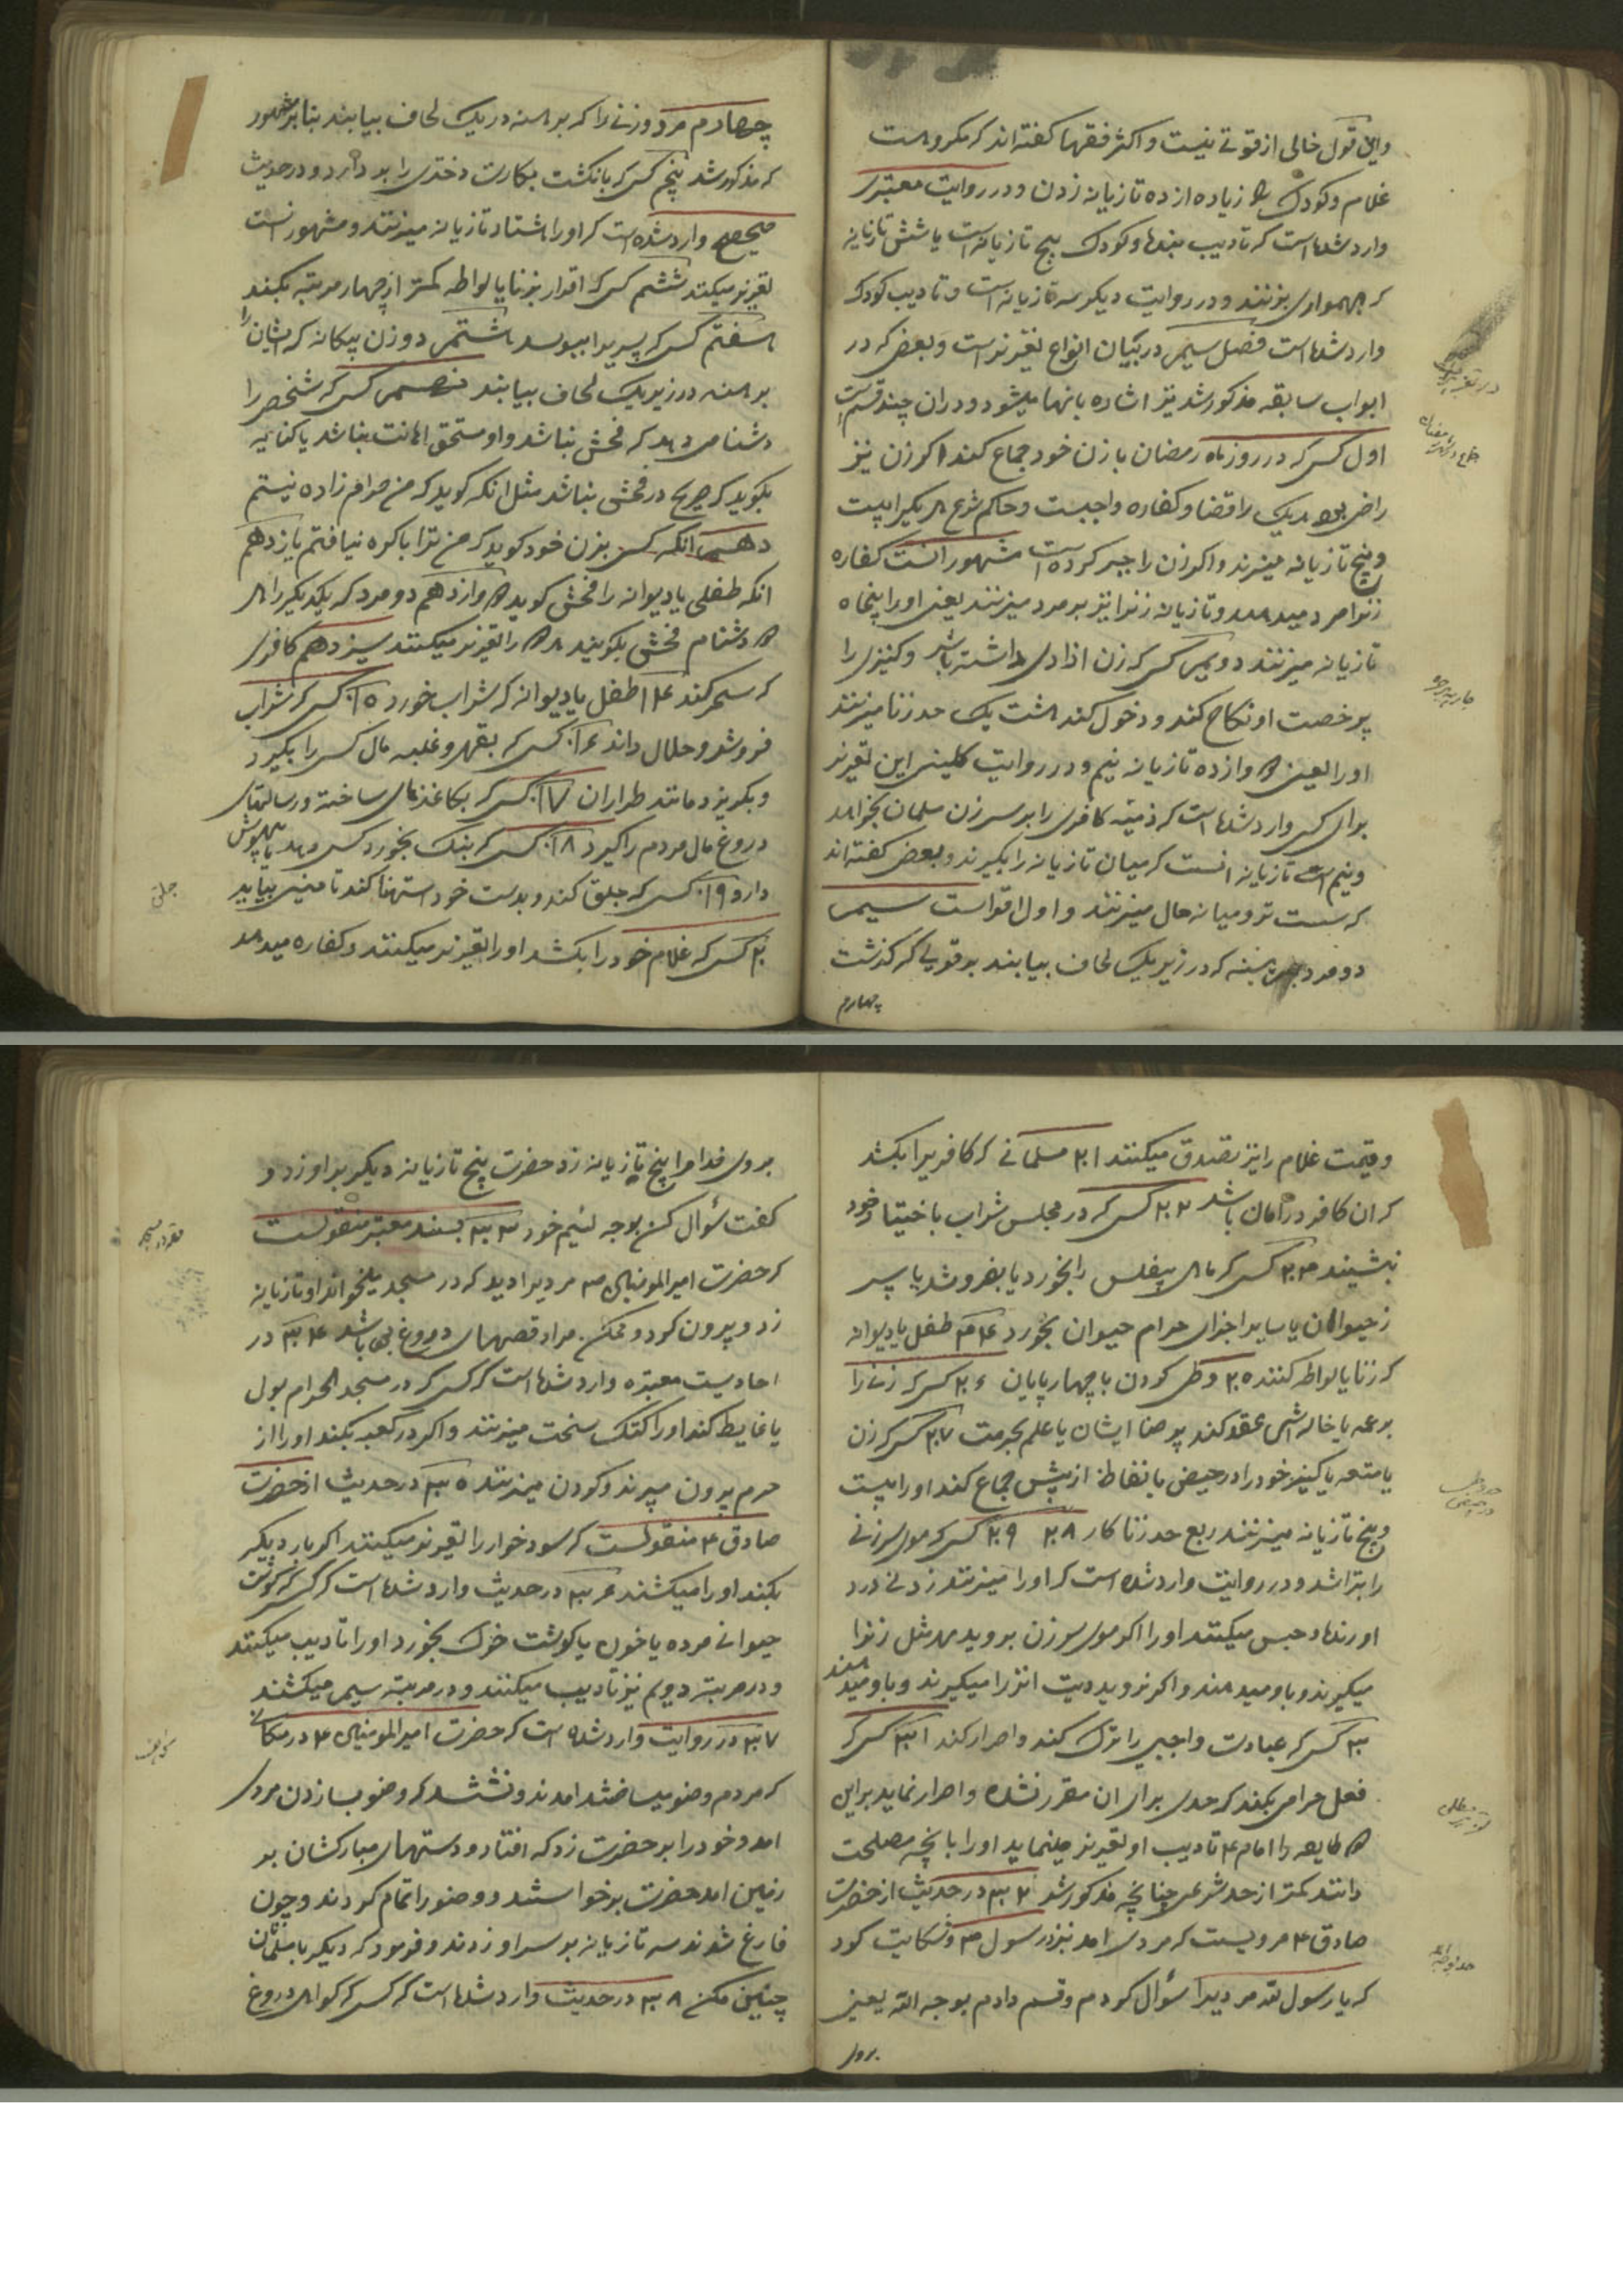 واین قول خالی از قوتے نیست و اکثر فقها کفته اند که مکروهست
غلام و کودک را زیاده از ده تازیانه زدن و در روایت معتبری
وارد شده است که تادیب بندها و کودک پنج تازیانه است یا شش تازیانه
که بهمواری بزنند و در روایت دیکر سه تازیانه است و تادیب کودک
وارد شده است فصل سیم در بیان انواع تغیریر است و بعض که در
ابواب سابقه مذکور شد نیز اشاره بانها میشود و دران چند قسم است
اول کسی که در روز ماه رمضان با زن خود جماع کند اکر زن نیز
راضی بود هر یک را قضا و کفاره واجبست و حاکم شرع هر یک را بیست
و پنج تازیانه میزند و اکر زن را جبر کرده است مشهور انست کفاره
زنرا مرد میدهد و تازیانه زنرا نیز بر مرد میزنند یعنی او را پنجاه
تازیانه میزنند دویم کسی که زن ازادی داشته باشد و کنیزی را
بی رخصت او نکاح کند و دخول کند هشت یک حد زنا میزنند
او را یعنی دوازده تازیانه نیم و در روایت کلینی این تغریر
برای کسی وارد شده است که ذمیه کافری را بر سر زن مسلمان بخواهد
و نیم تازیانه انست که میان تازیانه را بکیرند و بعض کفته اند
که سست تر و میانه حال میزنند و اول اقواست سیم
دو مرد برهنه که در زیر یک لحاف بیابند بر قولی که کذشت
چهارم
جاریه بر حره
چهارم مرد و زنے را که برهنه در یک لحاف بیابند بنا بر مشهور
که مذکور شد پنجم کسی که بانکشت بکارت دختری را بر دارد و در حدیث
صحیح وارد شده است که او را هشتاد تازیانه میزنند و مشهور انست
تغریر میکنند ششم کسی که اقرار بزنا یا لواطه کمتر از چهار مرتبه بکند
هفتم کسی که پسریرا ببوسد هشتم دو زن بیکانه که ایشان را
برهنه در زیر یک لحاف بیابند نهم کسی که شخصی را
دشنامی دهد که فحش نباشد و او مستحق اهانت نباشد یا کنایه
بکوید که صریح در فحش نباشد مثل انکه کوید که من حرام زاده نیستم
دهم انکه کسی بزن خود کوید که من ترا باکره نیافتم یازدهم
انکه طفلی یا دیوانه را فحش کوید دوازدهم دو مرد که یکدیکر را
دشنام فحش بکویند هر دو را تغریر میکنند سیزدهم کافری
که سحر کند ۱۴ طفل یا دیوانه که شراب خورد ۱۵ کسی که شراب
فروشد و حلال داند ۱۶ کسی که بقهر و غلبه مال کسی را بکیرد
و بکریزد مانند طراران ۱۷ کسی که بکاغذهای ساختە و رسالتهای
دروغ مال مردم را کیرد ۱۸ کسی که بنک بخورد کسی دهد یا بیهوش
دارو ۱۹ کسی که جلق کند و بدست خود استمنا کند تا منی بیاید
۲۰ کسی که غلام خود را بکشد او را تغریر میکنند و کفاره میدهد
جلق
و قیمت غلام را نیز تصدق میکنند ۲۱ مسلمانے که کافریرا بکشد
که ان کافر در امان باشد ۲۲ کسی که در مجلس شراب باختیار خود
نشیند ۲۳ کسی که ماهی بیفلس را بخورد یا بفروشد یا سپر
ز حیوان یا سایر اجزای حرام حیوان بخورد ۲۴ طفل یا دیوانه
که زنا یا لواطه کنند ۲۵ وطی کردن با چهارپایان ۲۶ کسی که زنے را
بر عمه یا خاله اش عقد کند بی رضا ایشان با علم بحرمت ۲۷ کسی که زن
یا متعه یا کنیز خود را در حیض یا نفاط از پیش جماع کند او را بیست
و پنج تازیانه میزنند ربع حد زناکار ۲۸ ۲۹ کسی که موی سر زنے
را بتراشد و در روایت وارد شده است که او را میزنند زدنے درد
اورنده و حبس میکنند او را اکر موی سر زن بروید مهر مثل زنرا
میکیرند و باو میدهند و اکر نروید دیت انرا میکیرند و باو میدهند
۳۰ کسی که عبادت واجبی را ترک کند و اصرار کند ۳۱ کسی که
فعل حرامی بکند که حدی برای ان مقرر نشده و اصرار نماید براین
طایفه را امام ۴ تادیب او تغریر مینماید او را بانچه مصلحت
دانند کمتر از حد شرعی چنانچه مذکور شد ۳۲ در حدیث از حضرت
صادق ۴ مرویست که مردی امد نزد رسول ص و شکایت کرد
که یا رسول الله مردیرا سؤال کردم و قسم دادم بوجه الله یعنی
بروی
بروی خدا مرا پنج تازیانه زد حضرت پنج تازیانه دیکر بر او زد و
کفت سؤال کن بوجه لئیم خود ۳۳ بسند معتبر منقولست
که حضرت امیرالمومنین مردیرا دید که در مسجد میخواند او تازیانه
زد و بیرون کرد و ممکن مراد قصهای دروغ بی باشد ۳۴ در
احادیث معتبره وارد شده است که کسی که در مسجد الحرام بول
یا غایط کند او را کتک سخت میزنند و اکر در کعبه بکند او را از
حرم بیرون میبرند و کردن میزنند ۳۵ در حدیث از حضرت
صادق ۴ منقولست که سودخوار را تغریر میکنند اکر بار دیکر
بکند او را میکشند ۳۶ در حدیث وارد شده است که کسی که کوشت
حیوانے مرده یا خون یا کوشت خوک بخورد او را تادیب میکنند
و در مرتبه دویم نیز تادیب میکنند و در مرتبه سیم میکشند
۳۷ در روایت وارد شده است که حضرت امیرالمومنین ۴ در مکانے
که مردم وضو میساختند امدند و نشستند که وضو بسازند مردی
امد و خود را بر حضرت زد که افتاد و دستهای مبارکشان بر
زمین امد حضرت برخواستند و وضو را تمام کردند و چون
فارغ شدند سه تازیانه بر سر او زدند و فرمود که دیکر با مسلمانان
چنین مکن ۳۸ در حدیث وارد شده است که کسی که کواهی دروغ